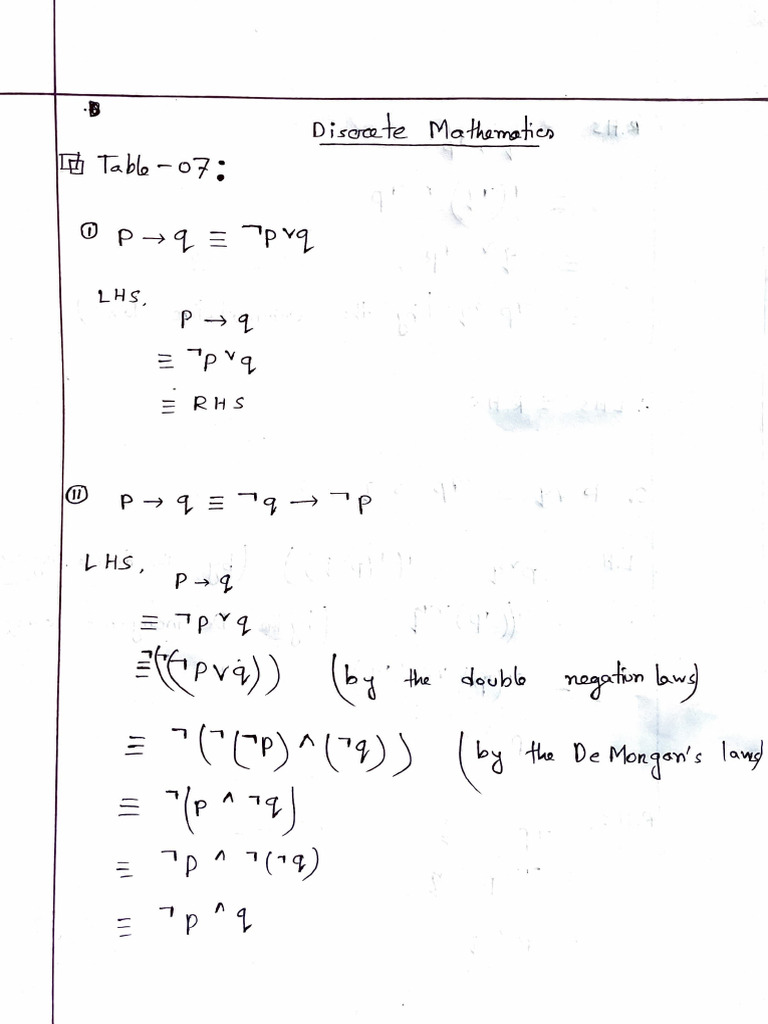 Discrete Mathematics
Table-07:
① p → q ≡ ¬p ∨ q
LHS,
p → q
≡ ¬p ∨ q
≡ RHS
⑪ p → q ≡ ¬q → ¬p
LHS,
p → q
≡ ¬p ∨ q
≡ ¬(¬(¬p ∨ q)) (by the double negation laws)
≡ ¬(¬(¬p) ∧ (¬q)) (by the De Mongan's laws)
≡ ¬(p ∧ ¬q)
≡ ¬p ∧ ¬(¬q)
≡ ¬p ∧ q